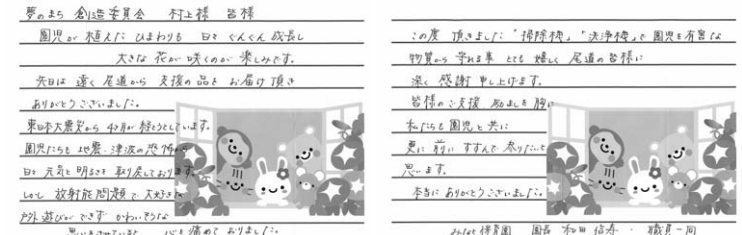 夢のまち 創造委員会 村上様 皆様
園児が 植えた ひまわりも 日々 ぐんぐん 成長し
大きな 花が 咲くのが 楽しみです。
先日は 遠く 尾道から 支援の品を お届け 頂き
ありがとうございました。
東日本大震災から 4ヶ月が 経とうとしています。
園児たちも 地震・津波の 恐怖から
日々 元気と 明るさを 取り戻しております。
しかし 放射能問題で 大好きな
戸外 遊びが できず かわいそうな
思いをさせていると 心を痛めて おりました。
この度 頂きました "掃除機" "洗浄機"で 園児を有害な
物質から 守れる事 とても 嬉しく 尾道の皆様に
深く 感謝 申し上げます。
皆様の ご支援 励ましを 胸に
私たちも 園児と 共に
更に 前に すすんで 参りたいと
思います。
本当に ありがとうございました。
保育園 園長 和田 信寿 ・ 職員一同